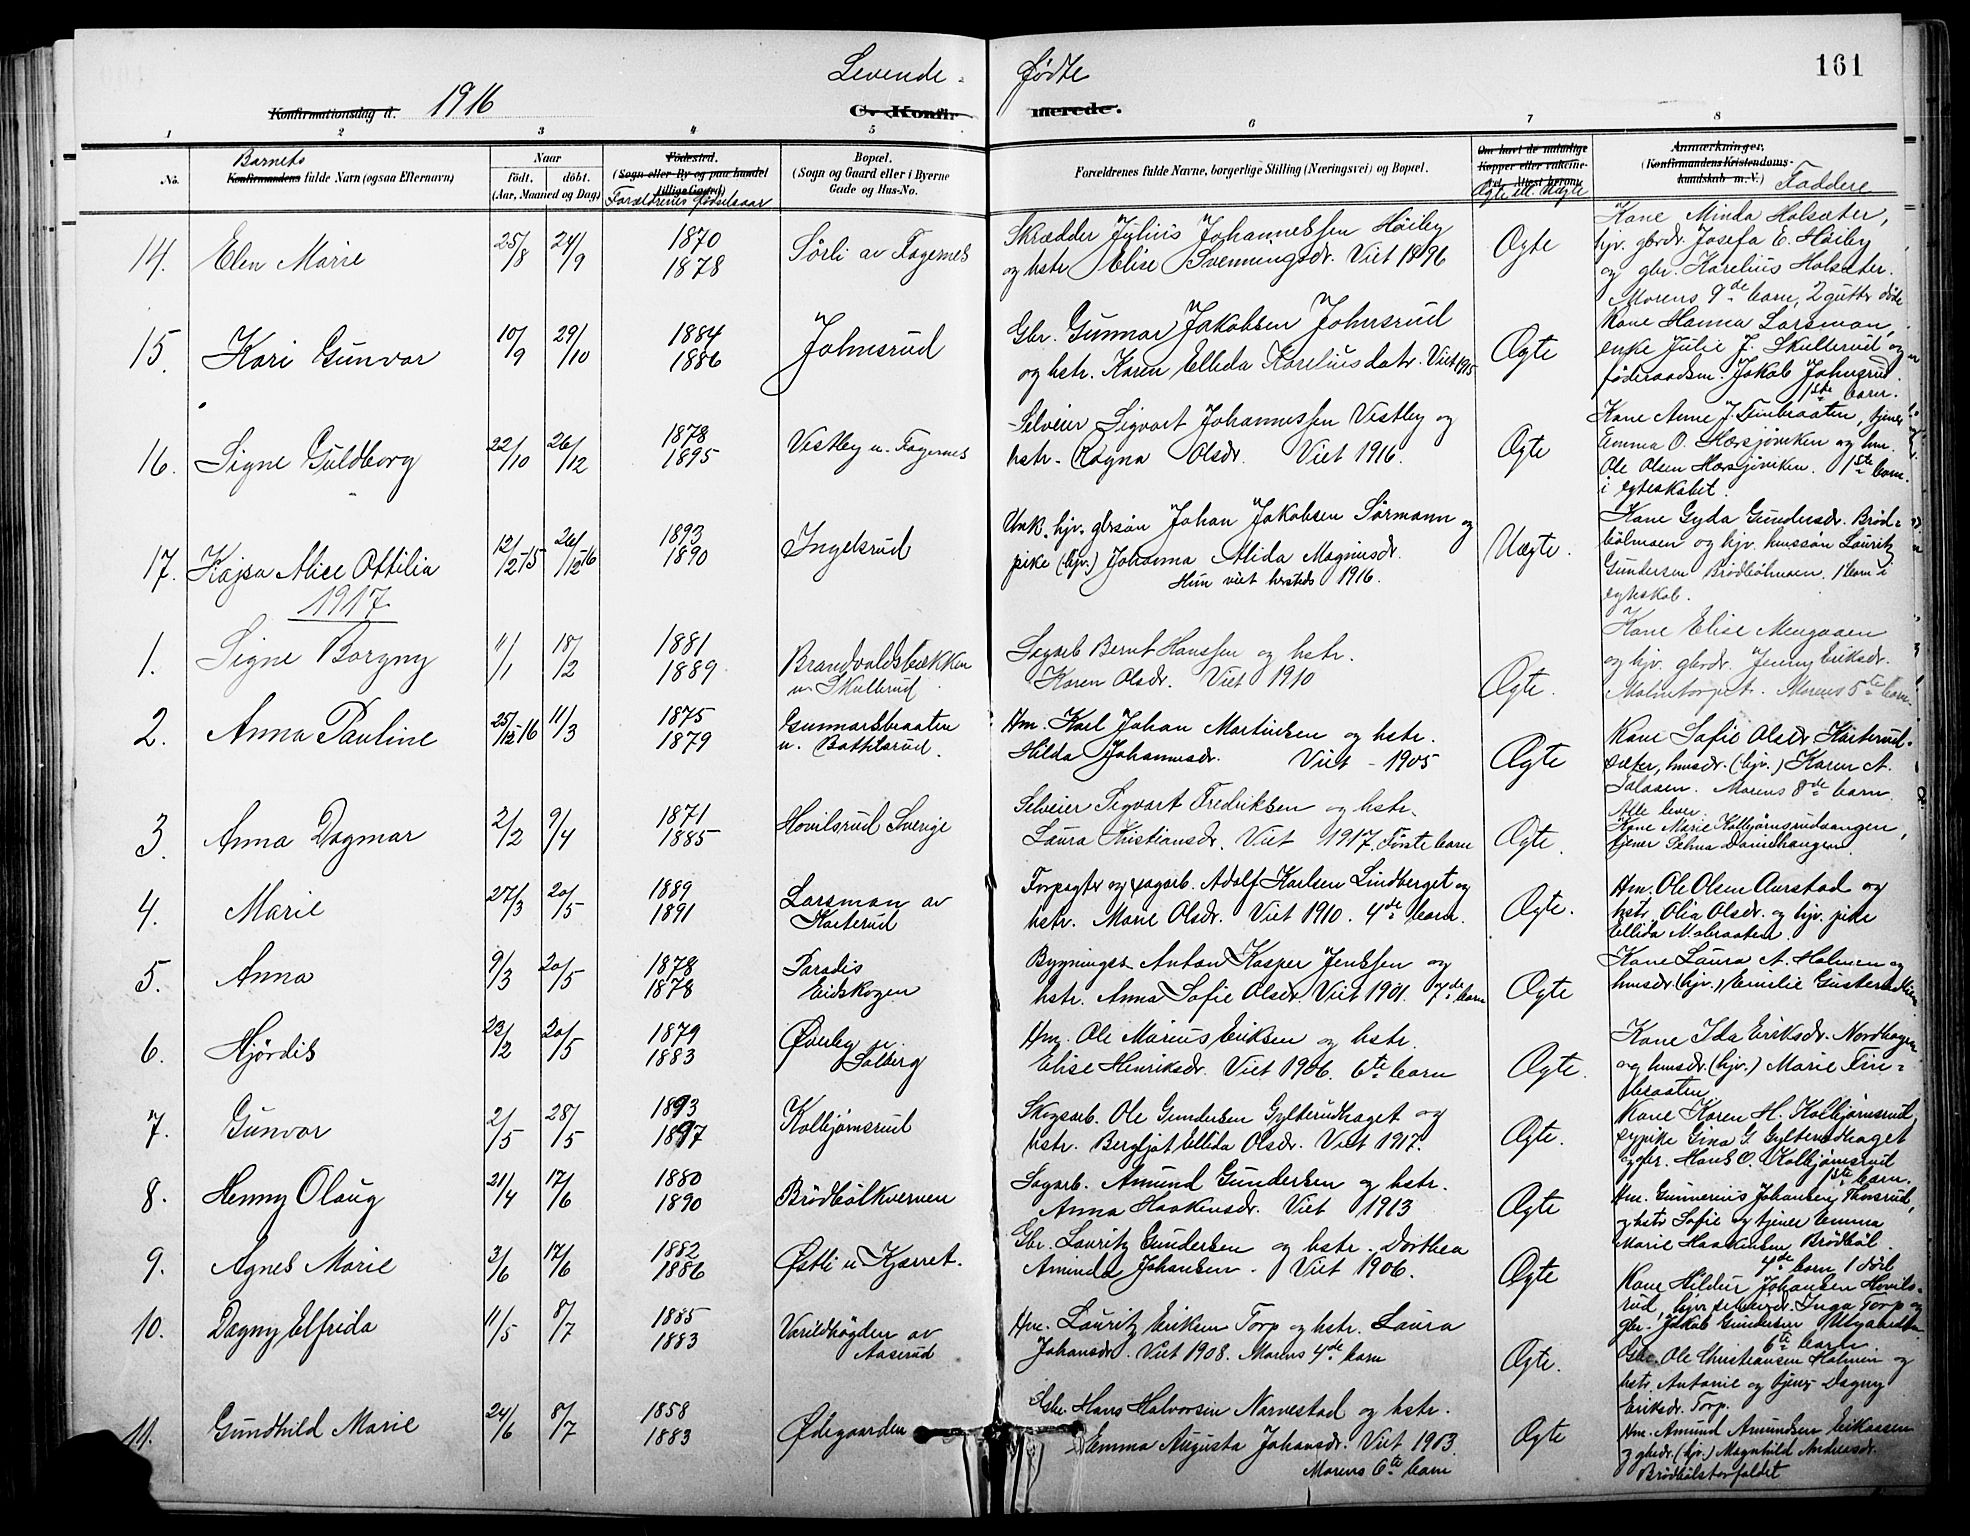 161
Levende Fødte
Konfirmationsdag d. 1916 C. Konfirmerede.
1 2 3 4 5 6 7 8
No.
Barnets
Konfirmandens fulde Navn (ogsaa Efternavn)
Naar
født. døbt.
(Aar, Maaned og Dag)
Fødested.
(Sogn eller By og paa landet
tillige Gaard)
Forældrenes fødselsaar
Bopæl.
(Sogn og Gaard eller i Byerne
Gade og Hus-No.
Forældrenes fulde Navne, borgerlige Stilling (Næringsvei) og Bopæl.
Om havt de naturlige
Kopper eller vaccineret.
Ægte ell. Uægte
Anmærkninger.
(Konfirmandens Kristendoms-
kundskab m.V.) Faddere
14. Elen Marie 25/8 24/9 1870 1878 Sørli av Fagernes
Skrædder Julius Johannessen Høiby
og hstr Elise Svenningsdr. Viet 1896
Ægte
Kone Minda Holsæter,
hjv. gbrdr. Josefa E. Høiby
og gbr. Karelius Holsæter.
Morens 9de barn, 2 gutter døde
15. Kari Gunvor 10/9 29/10 1884 1886 Johnsrud
Gbr. Gunnar Jakobsen Johnsrud
og hstr. Karen Ellida Kareliusdatr. Viet 1915
Ægte
Kone Hanna Larsmon,
enke Julie J. Skullerud og
føderaadsm. Jakob Johnsrud.
1ste barn.
16. Signe Guldborg 22/10 26/12 1878 1895 Vestby u. Fagernes
Selveier Sigvart Johannessen Vestby og
hstr. Ragna Olsdr. Viet 1916.
Ægte
Kone Anne J. Finbraaten, tjener
Emma O. Harsjøviken og hm.
Ole Olsen Harsjøviken. 1ste barn
i egteskabet.
17. Kajsa Alise Ottilia 12/2-15 26/12-16 1893 1890 Ingelsrud
Unk. hjv. gbrsøn Johan Jakobsen Sørmann og
pike (hjv.) Johanna Alida Magnusdr.
Hun viet hersteds 1916.
Uægte.
Kone Gyda Gundersdr. Brød-
bølmoen og hjv. hussøn Lauritz
Gundersen Brødbølmoen. 1 barn i
egteskab.
1917
1. Signe Borgny 11/1 18/2 1881 1889 Brandvoldsbækken
u. Skullerud
Sagarb Bernt Hanssen og hstr.
Karen Olsdr. Viet 1910
Ægte.
Kone Elise Mengaaen
og hjv. gbrdr. Jenny Eriksdr.
Malmtorpet. Morens 5te barn.
2. Anna Pauline 25/12-16 11/3 1875 1879 Gunnarsbraaten
u. Bothilsrud.
Hm. Karl Johan Martinsen og hstr.
Hilda Johannesdr. Viet - 1905
Ægte
Kone Sofie Olsdr Karterud-
sæter, husdr. (hjv.) Karen A.
Salaasen. Morens 8de barn.
Alle lever.
3. Anna Dagmar 2/2 9/4 1871 1885 Hovilsrud Sverige
Selveier Sigvart Fredriksen og hstr.
Laura Kristiansdr. Viet 1917. Første barn
Ægte.
Kone Marie Kolbjørnsrudvangen,
tjener Selma Davidhaugen.
4. Marie 27/3 20/5 1889 1891 Larsmon av
Karterud
Forpagter og sagarb. Adolf Karlsen Lindberget og
hstr. Marie Olsdr. Viet 1910. 4de barn.
Ægte.
Hm. Ole Olsen Aurstad og
hstr. Olia Olsdr. og hjv. pike
Ellida Mobraaten.
5. Anna 9/3 20/5 1878 1878 Paradis
Eidskogen
Bygningst. Anton Kasper Jenssen og
hstr. Anna Sofie Olsdr. Viet 1901. 7de barn
Ægte
Kone Laura A. Holmen og
husdr. (hjv.) Emilie
6. Hjørdis 23/2 20/5 1879 1883 Øverby u.
Solberg
Hm. Ole Marius Eriksen og hstr.
Elise Henriksdr. Viet 1906. 6te barn
Ægte.
Kone Ida Eriksdr. Nordhagen
og husdr. (hjv.) Marie Fin-
braaten
7. Gunvor 2/5 28/5 1893 1897 Kolbjørnsrud
Skogsarb. Ole Gundersen Gylterudhaget og
hstr. Bergljot Ellida Olsdr. Viet 1917.
Ægte.
Kone Karen H. Kolbjørnsrud,
sypike Gina G. Gylterudhaget
og gbr. Hans O. Kolbjørnsrud
1ste barn.
8. Henny Olaug 21/4 17/6 1880 1890 Brødbølkvernen
Sagarb. Amund Gundersen og hstr.
Anna Haakensdr. Viet 1913
Ægte
Hm. Gunnerius Johansen Thosrud,
og hstr Sofie og tjener Emma
Marie Haakensen, Brødbøl.
4de barn, 1 død
9. Agnes Marie 3/6 17/6 1882 1886 Østli u Kjærret.
Gbr. Lauritz Gundersen og hstr. Dorthea
Amunda Johansen. Viet 1906.
Ægte
Kone Hildur Johansen Hovils-
rud, hjv. Inga Torp og
gbr. Jakob Gundersen
6te barn.
10. Dagny Elfrida 11/5 8/7 1885 1883 Varildhøgden av
Aaserud
Hm. Lauritz Eriksen Torp og hstr. Laura
Johansdr. Viet 1908. Morens 4de barn
Ægte.
Gbr. Ole Christiansen Holmen og
hstr. Antonie og tjener Dagny
Eriksdr. Torp.
11. Gundhild Marie 24/6 8/7 1858 1883 Ødegaarden
Gbr. Hans Halvorsen Narvestad og hstr.
Emma Augusta Johansdr. Viet 1903.
Morens 6te barn
Ægte
Hm. Amund Amundsen
og gbrdr. (hjv.) Magnhild Andreasdr.
Brødbølstorfaldet